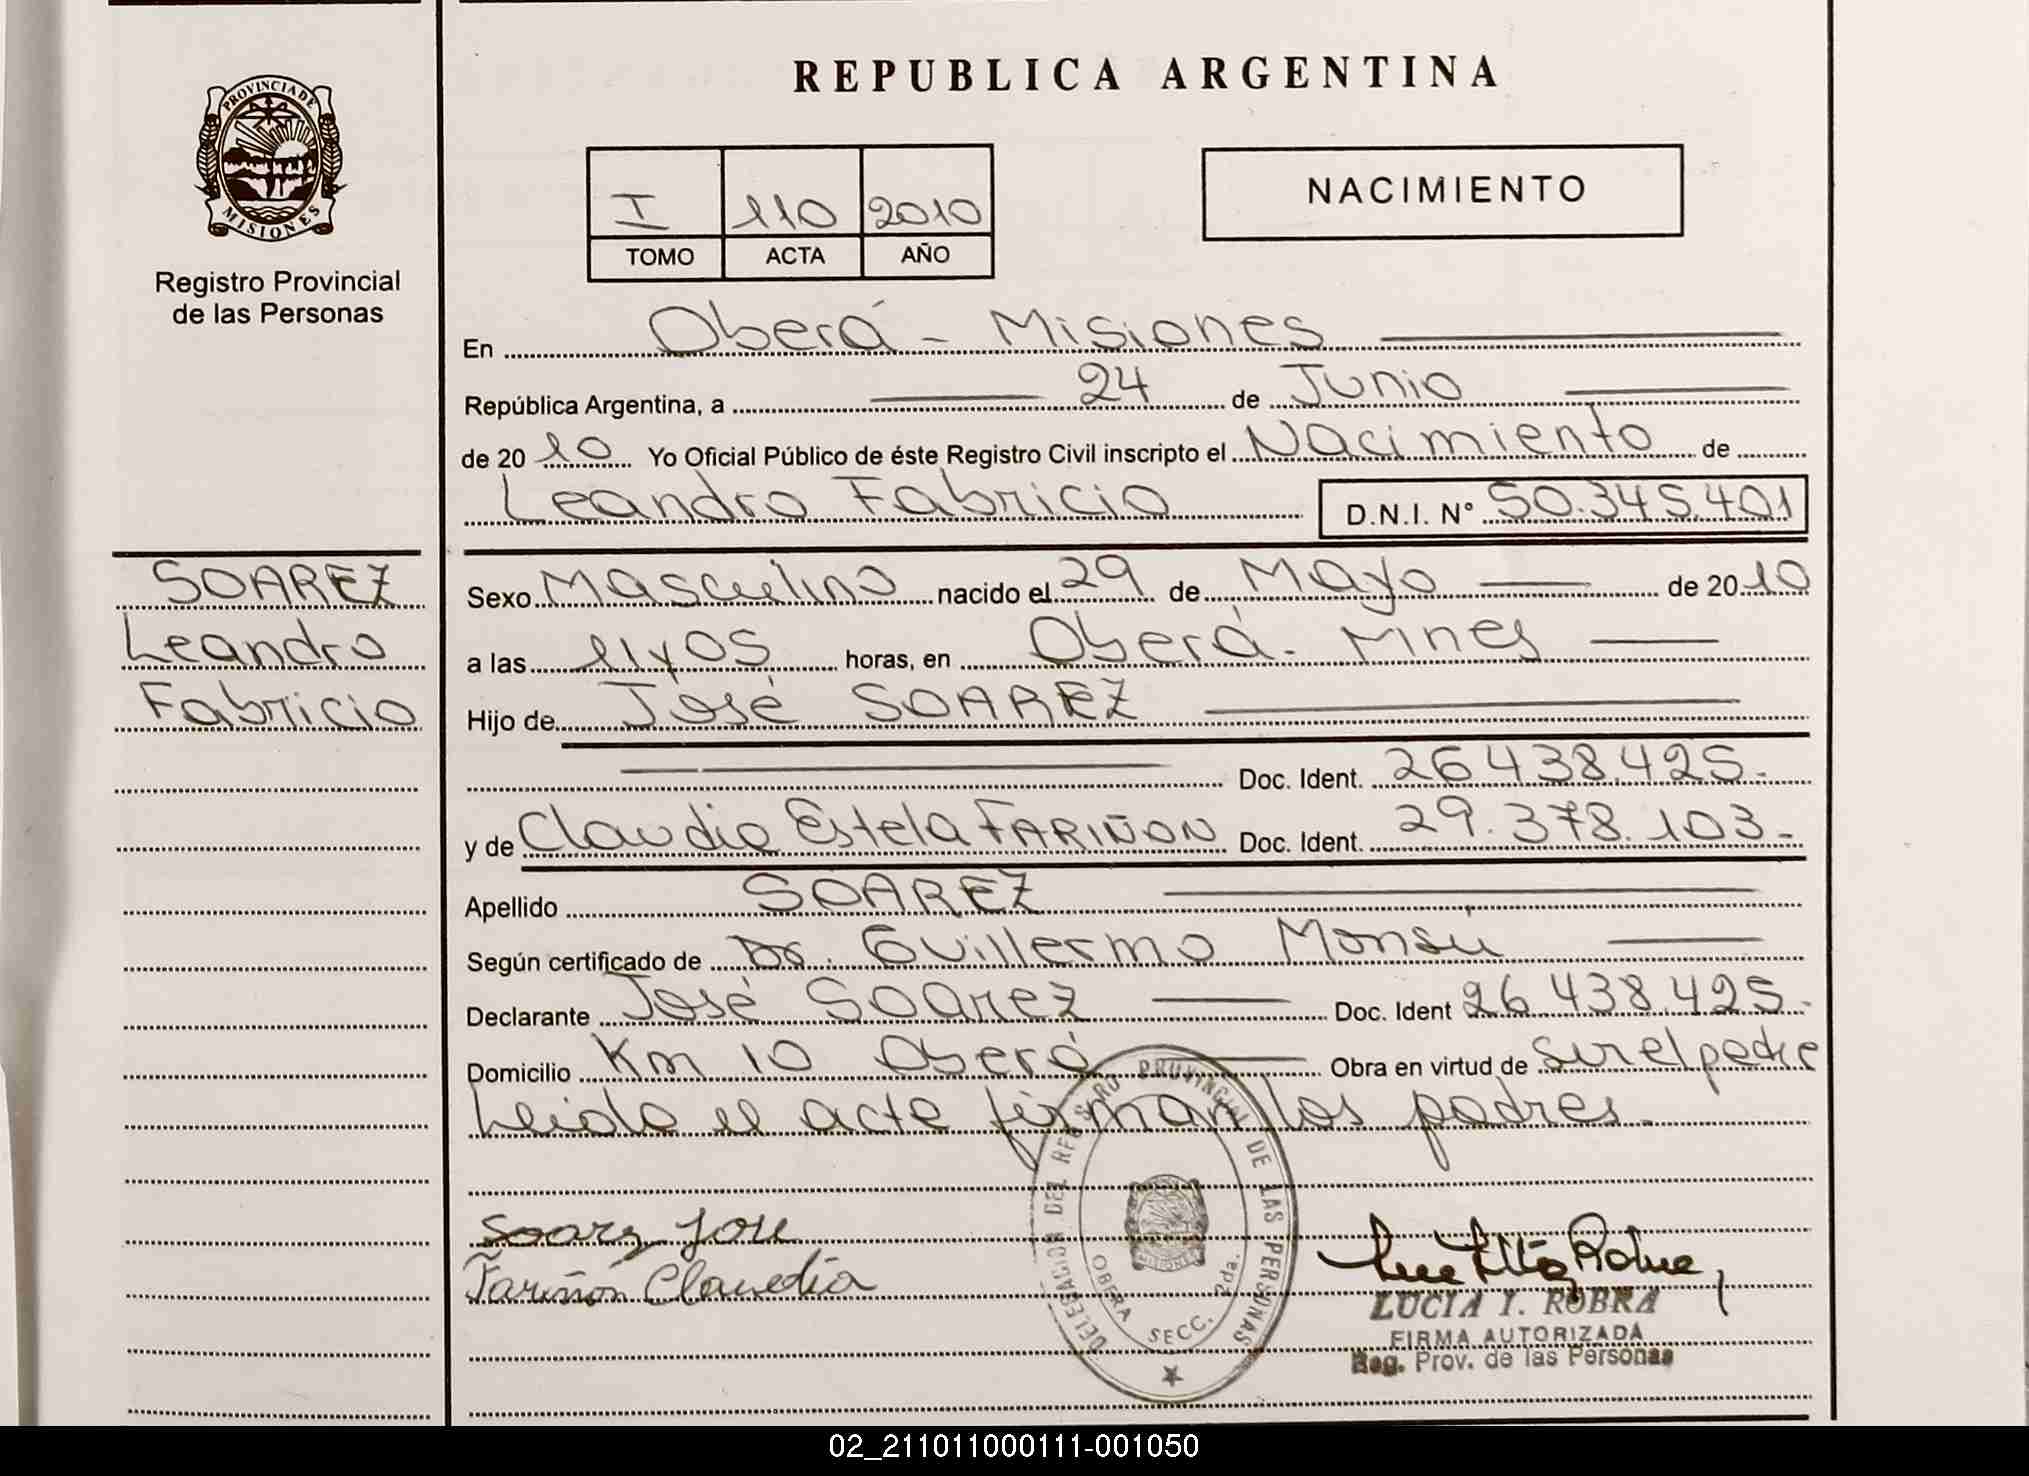 PROVINCIA DE
MISIONES
Registro Provincial
de las Personas
REPUBLICA ARGENTINA
I 110 2010
TOMO ACTA AÑO
NACIMIENTO
En Oberá - Misiones
República Argentina, a 24 de Junio
de 2010 Yo Oficial Público de éste Registro Civil inscripto el Nacimiento de
Leandro Fabricio D.N.I. N° 50.345.401
SOAREZ
Leandro
Fabricio
Sexo Masculino nacido el 29 de Mayo de 2010
a las 11 y 05 horas, en Oberá - Mnes
Hijo de José SOAREZ
Doc. Ident. 26.438.425.-
y de Claudia Estela FARIÑON Doc. Ident. 29.378.103.-
Apellido SOAREZ
Según certificado de Dr. Guillermo Monsú
Declarante José Soarez Doc. Ident 26.438.425.-
Domicilio Km 10 Oberá Obra en virtud de ser el padre
Leida el acta firman los padres.
Soarz Jose
Fariñón Claudia
DELEGACION DEL REGISTRO PROVINCIAL DE LAS PERSONAS
OBERA SECC. 2da.
LUCIA I. ROBRA
FIRMA AUTORIZADA
Reg. Prov. de las Personas
02_211011000111-001050